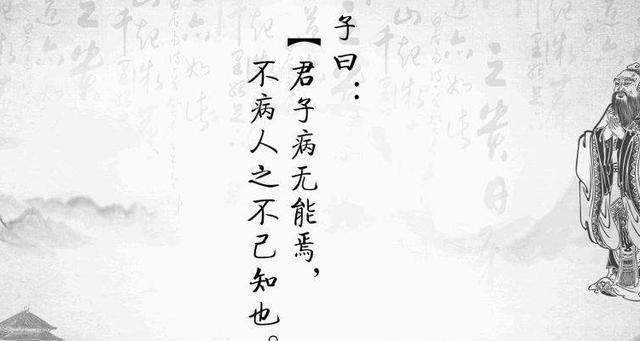 子曰：
【君子病无能焉，
不病人之不己知也。